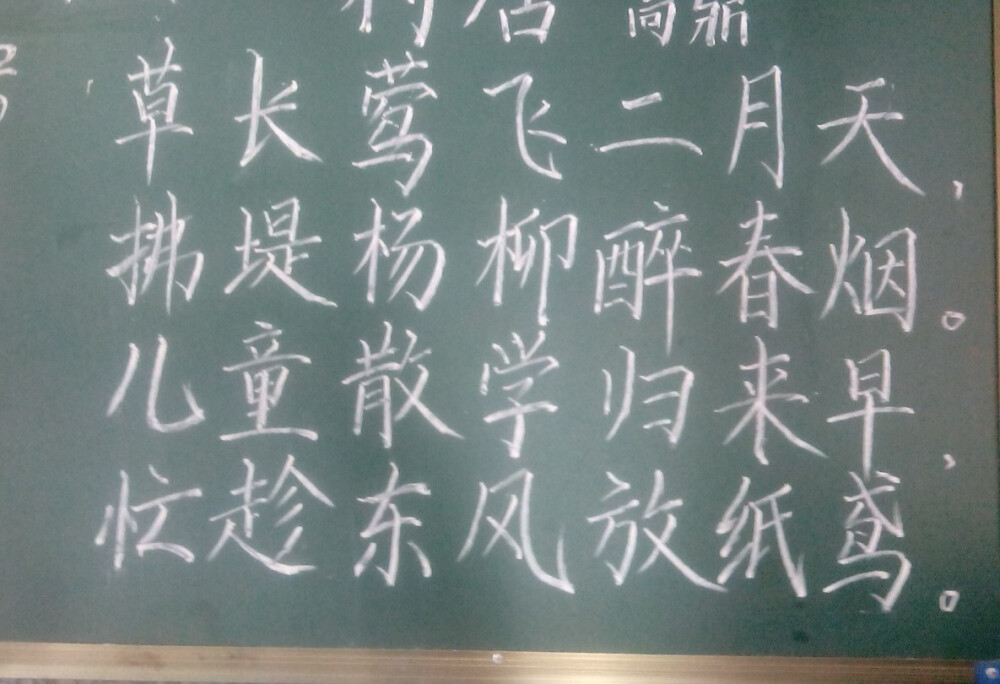 村居 高鼎
草长莺飞二月天，
拂堤杨柳醉春烟。
儿童散学归来早，
忙趁东风放纸鸢。